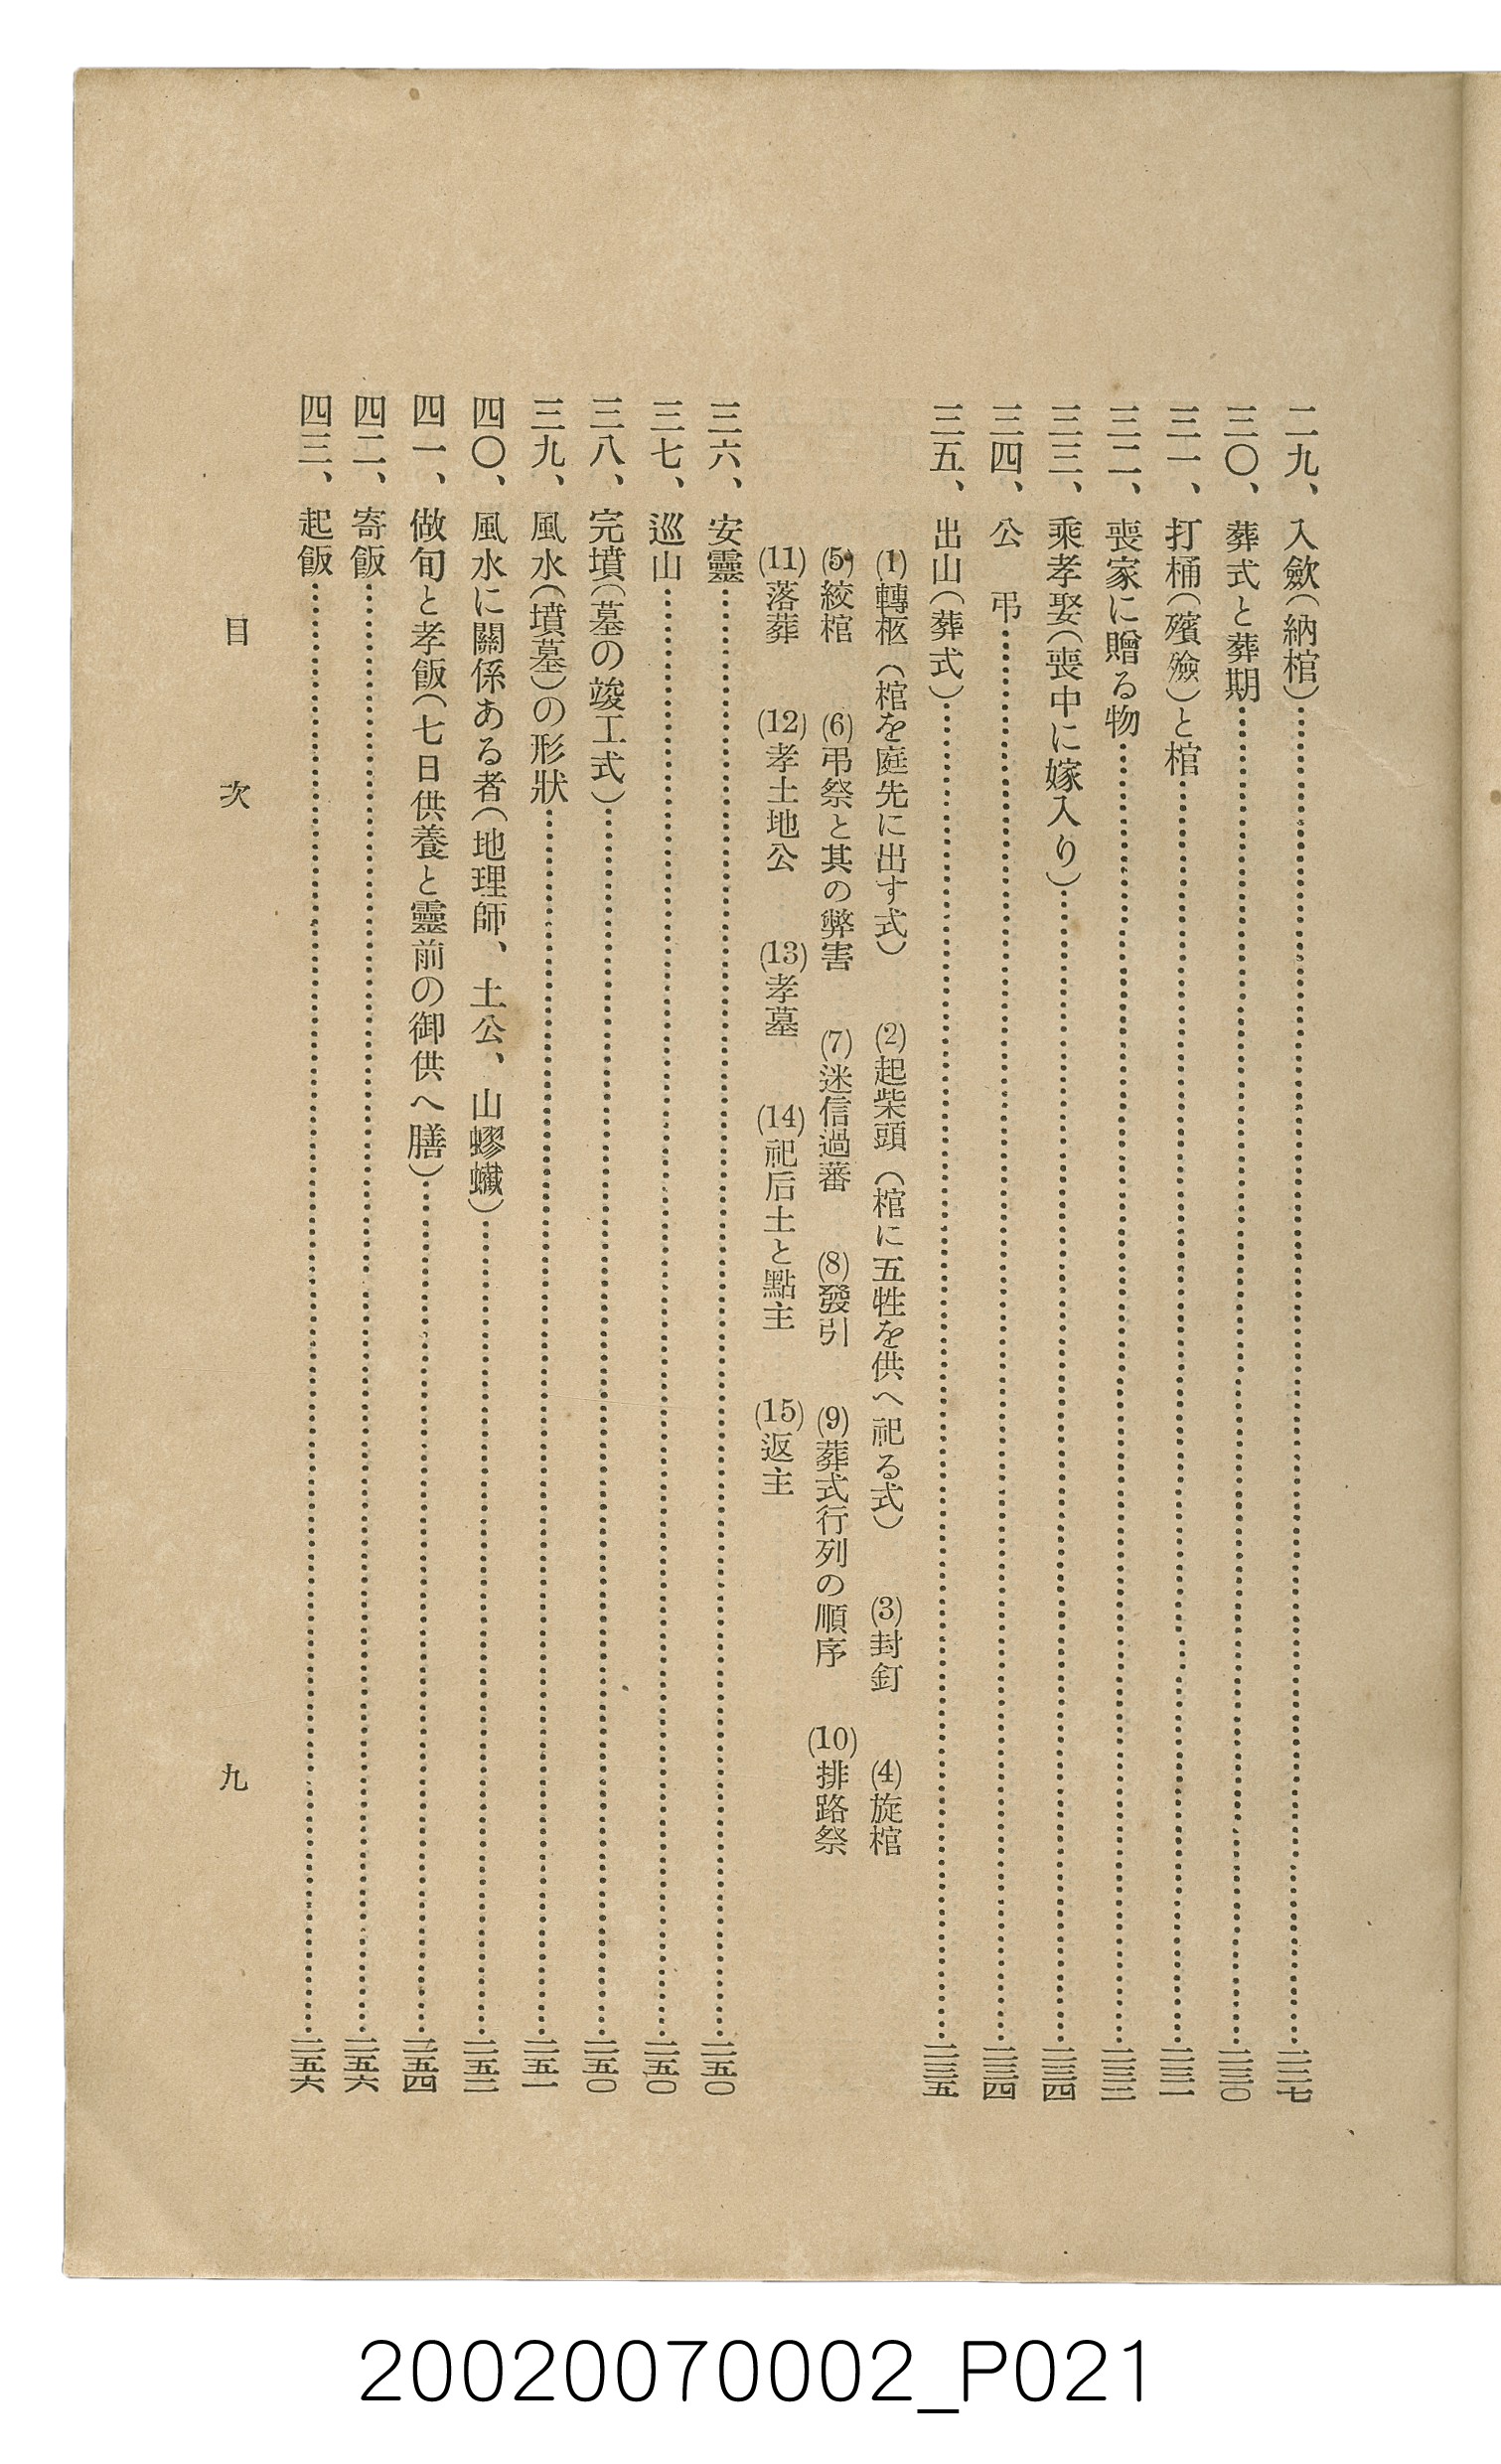 二九、入歛(納棺)……二二七
三〇、葬式と葬期……二三〇
三一、打桶(殯殮)と棺……二三一
三二、喪家に贈る物……二三三
三三、乘孝娶(喪中に嫁入り)……二三四
三四、公 弔……二三四
三五、出山(葬式)……二三五
(1)轉柩(棺を庭先に出す式) (2)起柴頭(棺に五牲を供へ祀る式) (3)封釘 (4)旋棺
(5)絞棺 (6)弔祭と其の弊害 (7)迷信過蕃 (8)發引 (9)葬式行列の順序 (10)排路祭
(11)落葬 (12)孝土地公 (13)孝墓 (14)祀后土と點主 (15)返主
三六、安靈……二五〇
三七、巡山……二五〇
三八、完墳(墓の竣工式)……二五〇
三九、風水(墳墓)の形狀……二五一
四〇、風水に關係ある者(地理師、土公、山)……
四一、做旬と孝飯(七日供養と靈前の御供へ膳)……二五四
四二、寄飯……二五六
四三、起飯……二五六
目 次
九
20020070002_P021